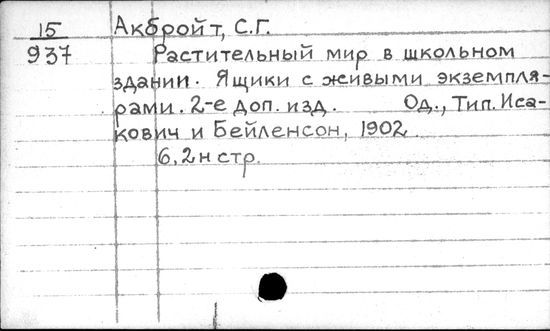 15 Акбройт, С.Г.
937 Растительный мир в школьном
здании. Ящики с живыми экземпля-
рами. 2-е доп. изд. Од., Тип. Иса-
кович и Бейленсон, 1902.
6,2н стр.